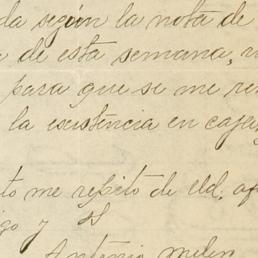 da según la nota de
de esta semana,
para que se me
la esistencia en caja
to me repito de Ud. af
go y S
Antonio